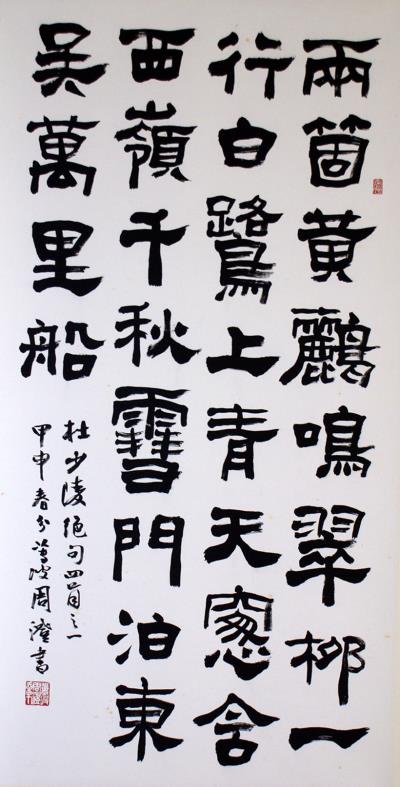 兩箇黃鸝鳴翠柳一
行白鷺上青天窻含
西嶺千秋雪門泊東
吳萬里船
杜少陵絕句四首之一
甲申春分蓴波周澄書